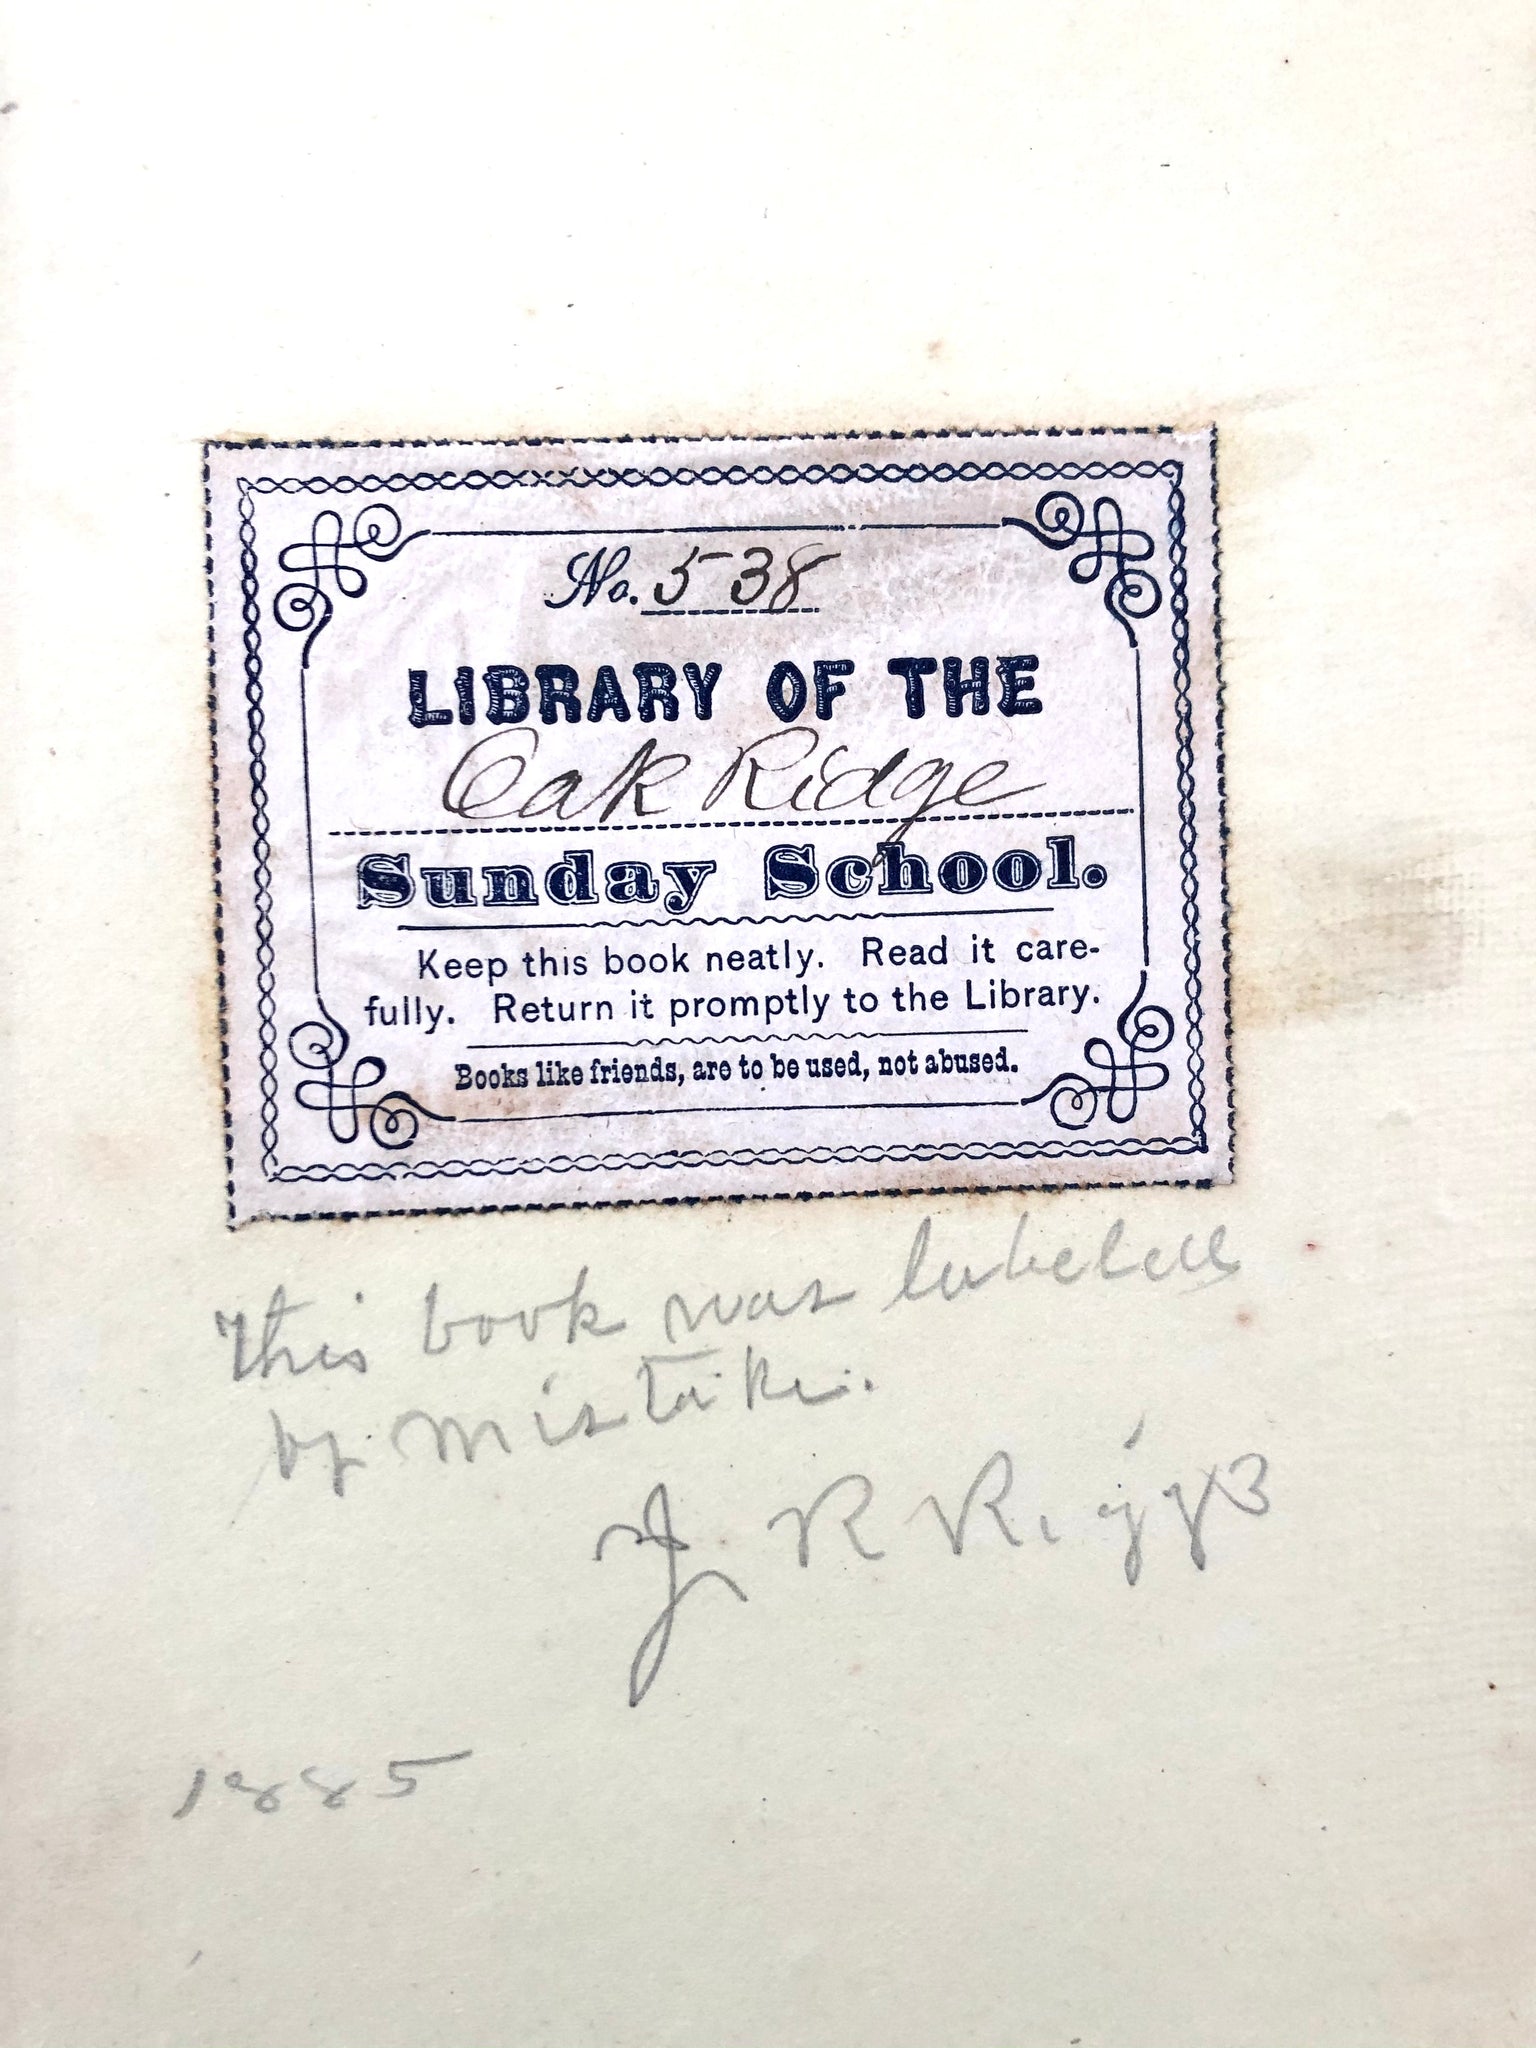 No. 538
LIBRARY OF THE
Oak Ridge
Sunday School.
Keep this book neatly. Read it care-
fully. Return it promptly to the Library.
Books like friends, are to be used, not abused.
This book was labeled
by mistake.
J R Riggs
1885